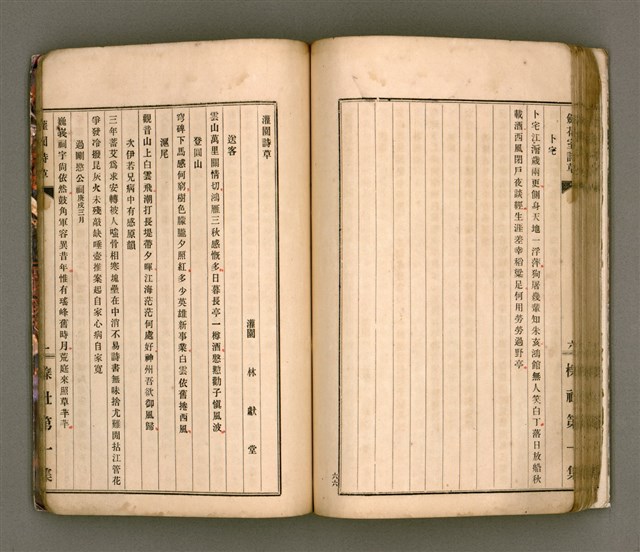 卜宅
卜宅江海歲兩更側身天地一浮萍狗屠幾輩知朱亥鴻館無人笑白丁落日放船秋
載酒西風閉戶夜談經生涯差幸稻粱足何用勞勞過野亭
六
櫟社第一集
六六
灌園詩草
灌園 林獻堂
送客
雲山萬里關情切鴻雁三秋感慨多日暮長亭一樽酒慇懃勸子愼風波
登圓山
穹碑下馬感何窮樹色朦朧夕照紅多少英雄新事業白雲依舊捲西風
滬尾
觀音山上白雲飛潮打長堤帶夕暉江海茫茫何處好神州吾欲御風歸
次伊若兄病中有感原韻
三年蓄艾爲求安轉被人嗤骨相寒塊壘在中消不易詩書無味捨尤難閒拈江管花
爭發冷撥昆灰火未殘敲缺唾壺推案起自家心病自家寬
過剛愍公祠庚戌三月
巍峩祠宇尙依然鼓角軍容異昔年惟有瑤峰舊時月荒庭來照草芊芊
灌園詩草
一
櫟社第一集